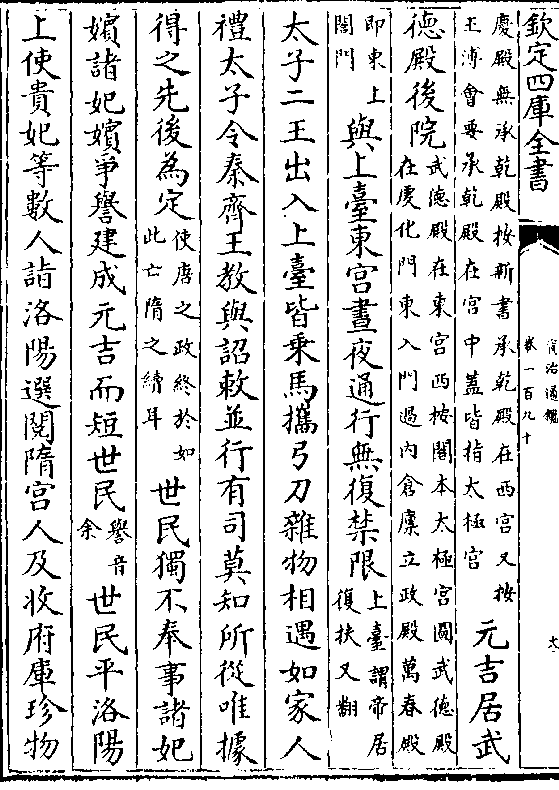 欽定四庫全書
資治通鑑
卷一百九十
六
慶殿無承乾殿按新書承乾殿在西宫又按
王溥會要承乾殿在宫中蓋皆指太極宫
元吉居武
德殿後院
武德殿在東宫西按閣本太極宫圖武德殿
在虔化門東入門過内倉廩立政殿萬春殿
即東上
閤門
與上臺東宫晝夜通行無復禁限
上臺謂帝居
復扶又翻
太子二王出入上臺皆乘馬攜弓刀雜物相遇如家人
禮太子令秦齊王教與詔敕並行有司莫知所從唯據
得之先後為定
使唐之政終於如
此亡隋之續耳
世民獨不奉事諸妃
嬪諸妃嬪爭譽建成元吉而短世民
譽音
余
世民平洛陽
上使貴妃等數人詣洛陽選閱隋宫人及收府庫珍物